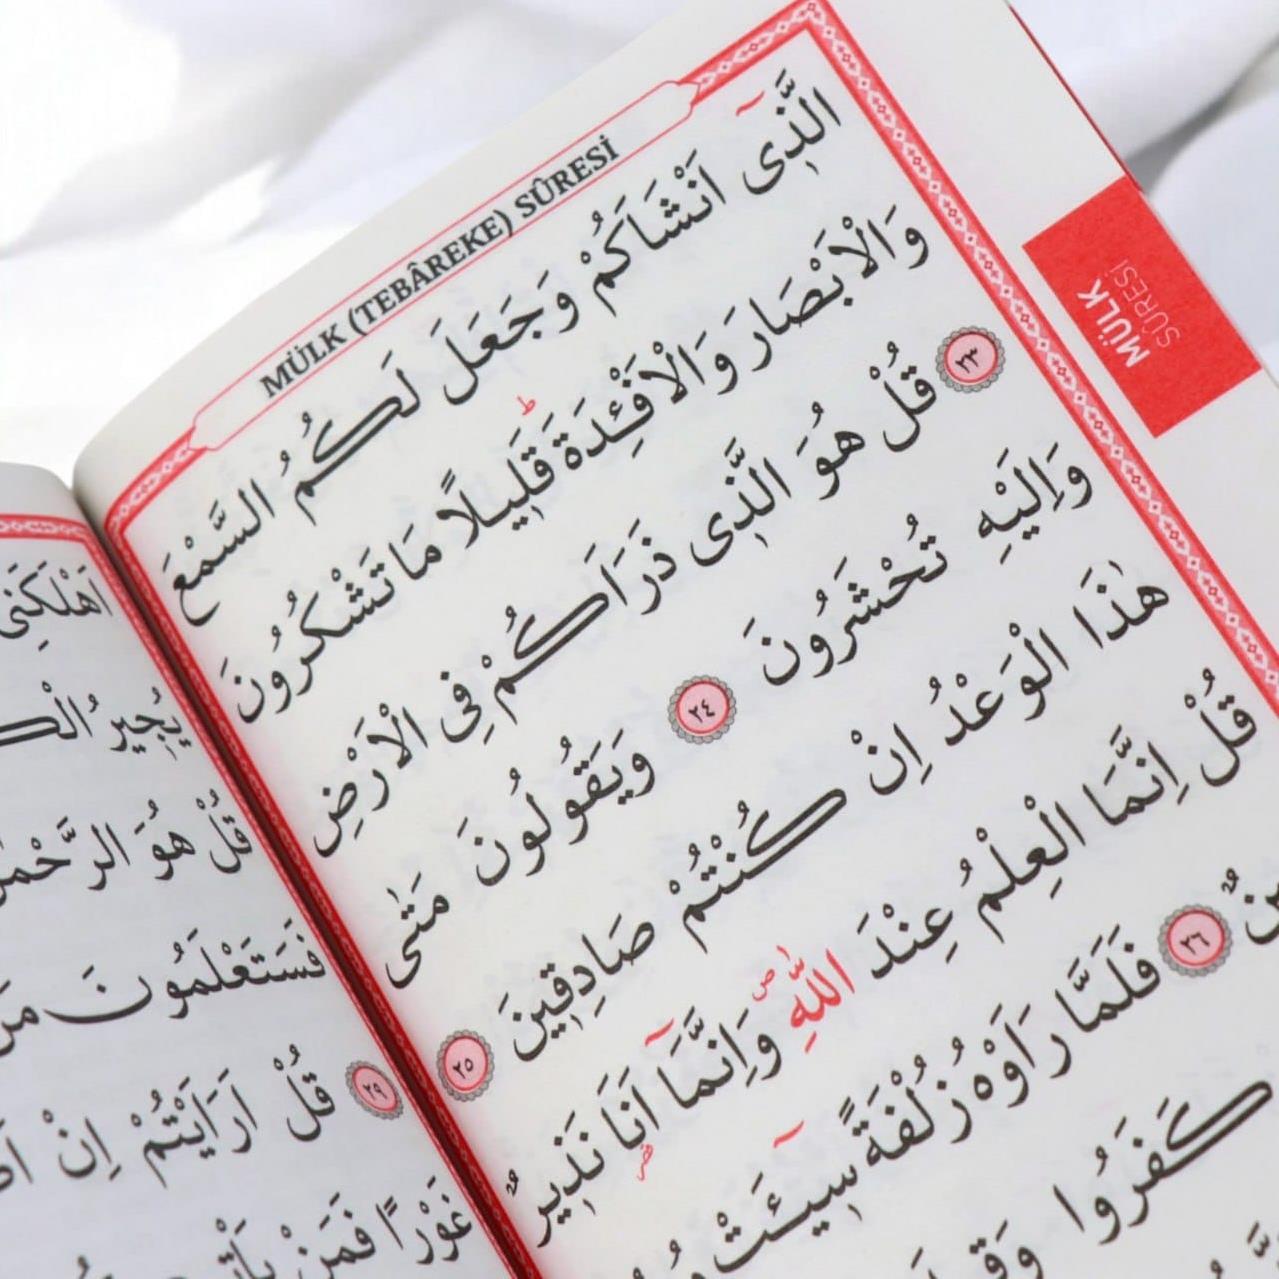 MÜLK (TEBÂREKE) SÛRESİ
MÜLK
SÛRESİ
الَّذ۪ٓى اَنْشَاَكُمْ وَجَعَلَ لَكُمُ السَّمْعَ
وَالْاَبْصَارَ وَالْاَفْـِٔدَةَۜ قَل۪يلًا مَا تَشْكُرُونَ
٢٣ قُلْ هُوَ الَّذ۪ى ذَرَاَكُمْ فِى الْاَرْضِ
وَاِلَيْهِ تُحْشَرُونَ ٢٤ وَيَقُولُونَ مَتٰى
هٰذَا الْوَعْدُ اِنْ كُنْتُمْ صَادِق۪ينَ ٢٥
قُلْ اِنَّمَا الْعِلْمُ عِنْدَ اللّٰهِۖ وَاِنَّمَٓا اَنَا۬ نَذ۪يرٌ
٢٦ فَلَمَّا رَاَوْهُ زُلْفَةً س۪ٓيـَٔتْ
كَفَرُوا
اَهْلَكَنِىَ
يُج۪يرُ
قُلْ هُوَ الرَّحْمٰنُ
فَسَتَعْلَمُونَ مَنْ
٢٩ قُلْ اَرَاَيْتُمْ اِنْ
غَوْرًا فَمَنْ